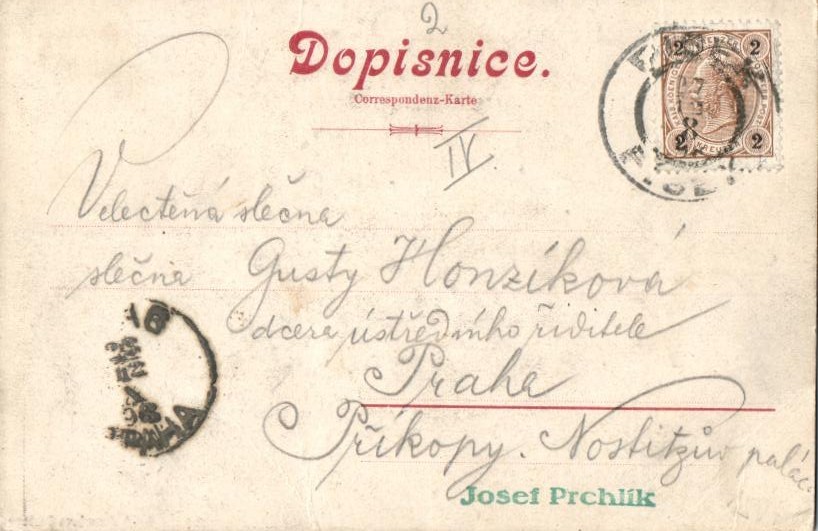 2
Dopisnice.
Correspondenz-Karte
IV
2 2
2 KREUZER 2
Velectěná slečna
slečna Gusty Honzíková
dcera ústředního řiditele
Praha
Příkopy. Nostitzův palác
PRAHA
Josef Prchlík